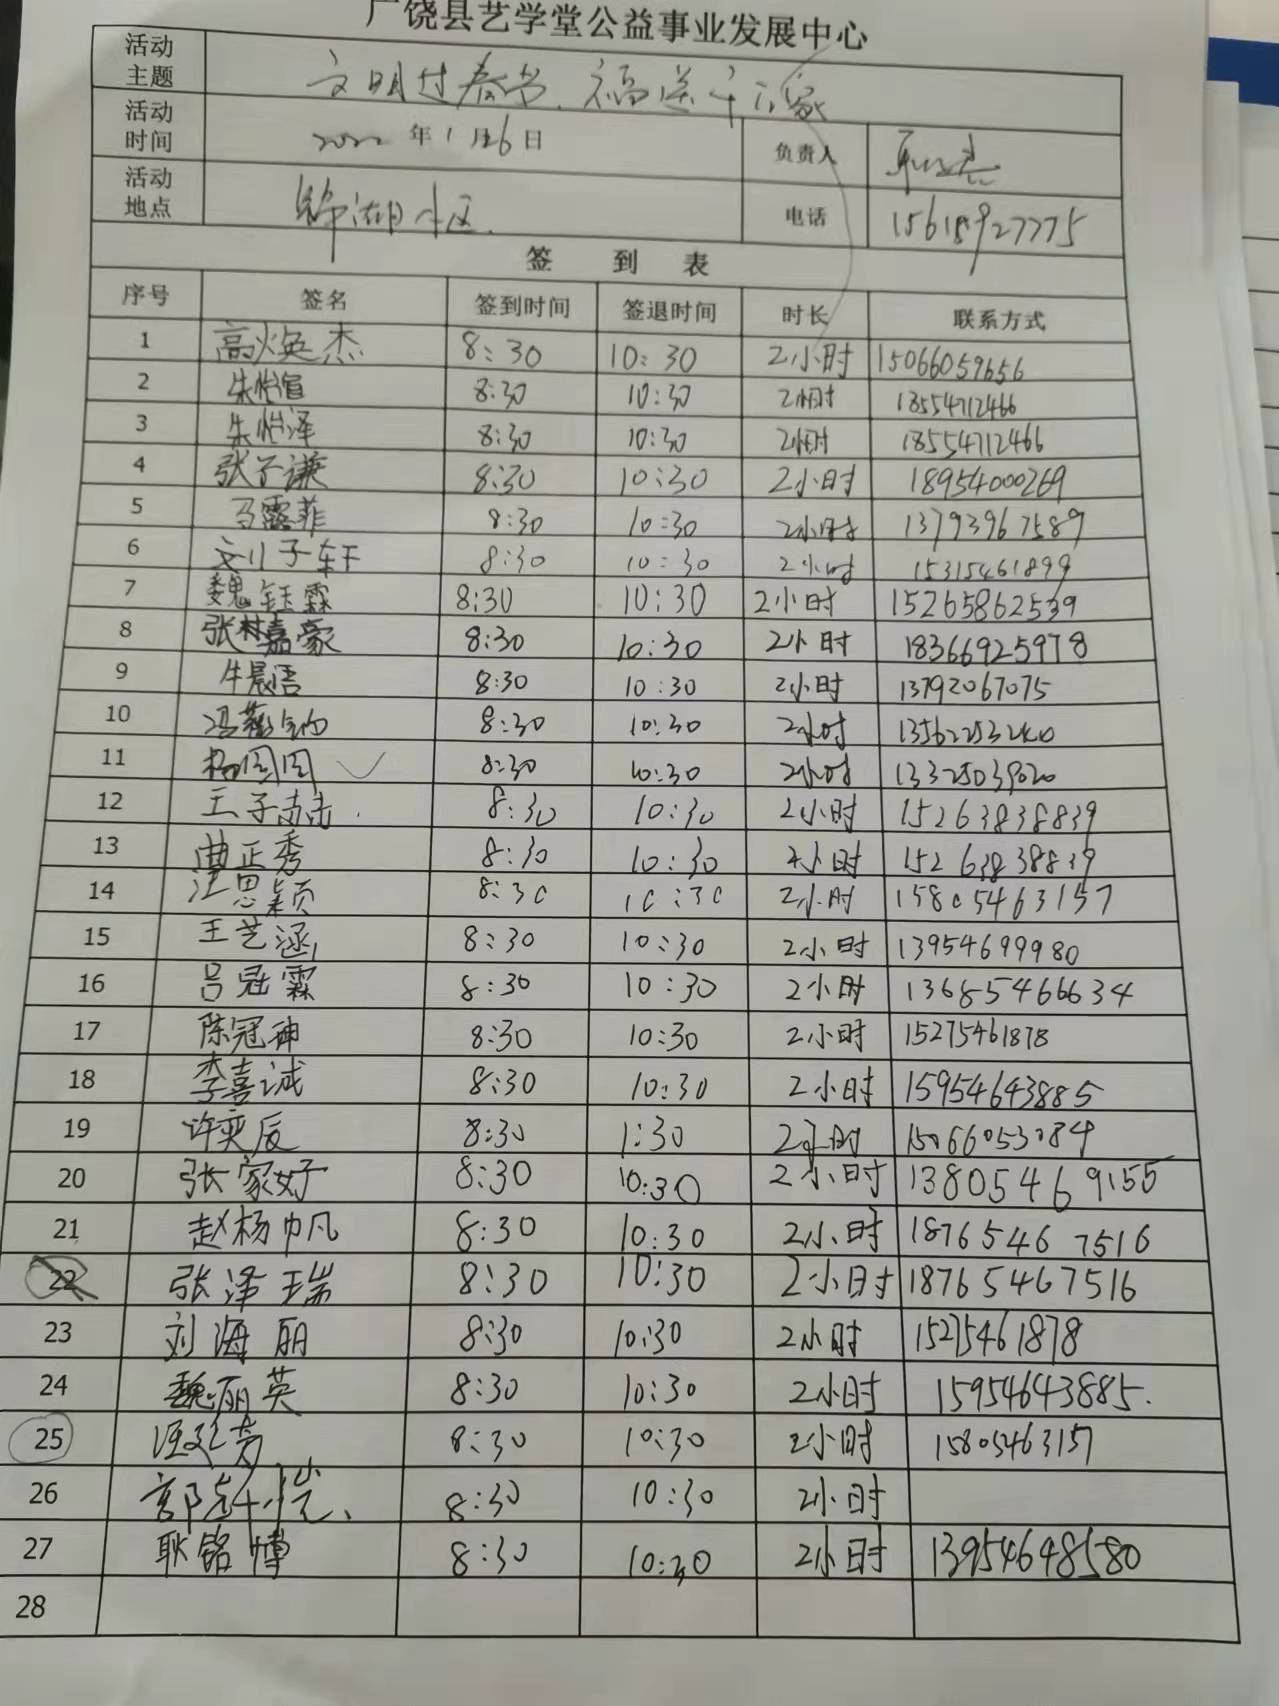 广饶县艺学堂公益事业发展中心
活动主题 文明过春节、福送千万家
活动时间 2022年1月26日 负责人
活动地点 锦湖小区 电话 15618927775
签到表
序号 签名 签到时间 签退时间 时长 联系方式
1 高焕杰 8:30 10:30 2小时 15066059656
2 朱怡宣 8:30 10:30 2小时 18554712466
3 朱怡泽 8:30 10:30 2小时 18554712466
4 张子谦 8:30 10:30 2小时 18954000269
5 马露菲 8:30 10:30 2小时 13793967589
6 子轩 8:30 10:30 2小时 15315461899
7 魏钰霖 8:30 10:30 2小时 15265862539
8 张林嘉豪 8:30 10:30 2小时 18366925978
9 牛晨语 8:30 10:30 2小时 13792067075
10 冯 8:30 10:30 2小时
11 杨周周 8:30 10:30 2小时 13325039020
12 王子喆 8:30 10:30 2小时 15263838839
13 曲正秀 8:30 10:30 2小时 15263838839
14 汪思颖 8:30 10:30 2小时 15805463157
15 王艺涵 8:30 10:30 2小时 13954699980
16 吕冠霖 8:30 10:30 2小时 13685466634
17 陈冠神 8:30 10:30 2小时 15275461878
18 李喜诚 8:30 10:30 2小时 15954643885
19 许奕辰 8:30 1:30 2小时 15066053084
20 张家好 8:30 10:30 2小时 13805469155
21 赵杨帆 8:30 10:30 2小时 18765467516
22 张泽瑞 8:30 10:30 2小时 18765467516
23 刘海丽 8:30 10:30 2小时 15275461878
24 魏丽英 8:30 10:30 2小时 15954643885.
25 汪延亮 8:30 10:30 2小时 15805463157
26 郭 8:30 10:30 2小时
27 耿铭博 8:30 10:30 2小时 13954648580
28